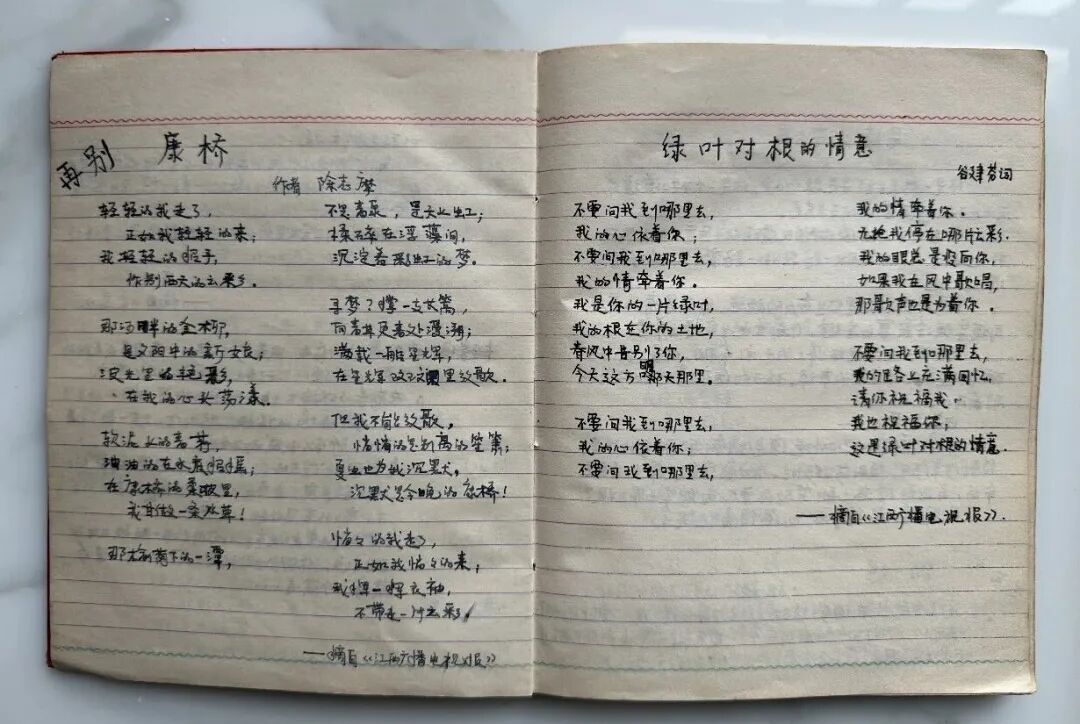 再别 康桥
作者 徐志摩
轻轻的我走了，
正如我轻轻的来；
我轻轻的招手，
作别西天的云彩。
那河畔的金柳，
是夕阳中的新娘；
波光里的艳影，
在我的心头荡漾。
软泥上的青荇，
油油的在水底招摇；
在康桥的柔波里，
我甘做一条水草！
那榆荫下的一潭，
不是清泉，是天上虹；
揉碎在浮藻间，
沉淀着彩虹的梦。
寻梦？撑一支长篙，
向青草更青处漫溯；
满载一船星辉，
在星辉斑斓里放歌。
但我不能放歌，
悄悄的是别离的笙箫；
夏虫也为我沉默，
沉默是今晚的康桥！
悄々的我走了，
正如我悄々的来；
我挥一挥衣袖，
不带走一片云彩。
——摘自《江西广播电视报》
绿叶对根的情意
谷建芬词
不要问我到哪里去，
我的心依着你；
不要问我到哪里去，
我的情牵着你。
我是你的一片绿叶，
我的根在你的土地，
春风中告别了你，
今天这方明天那里。
不要问我到哪里去，
我的心依着你；
不要问我到哪里去，
我的情牵着你。
无论我停在哪片云彩，
我的眼总是投向你，
如果我在风中歌唱，
那歌声也是为着你。
不要问我到哪里去，
我的路上充满回忆，
请你祝福我，
我也祝福你，
这是绿叶对根的情意。
——摘自《江西广播电视报》。